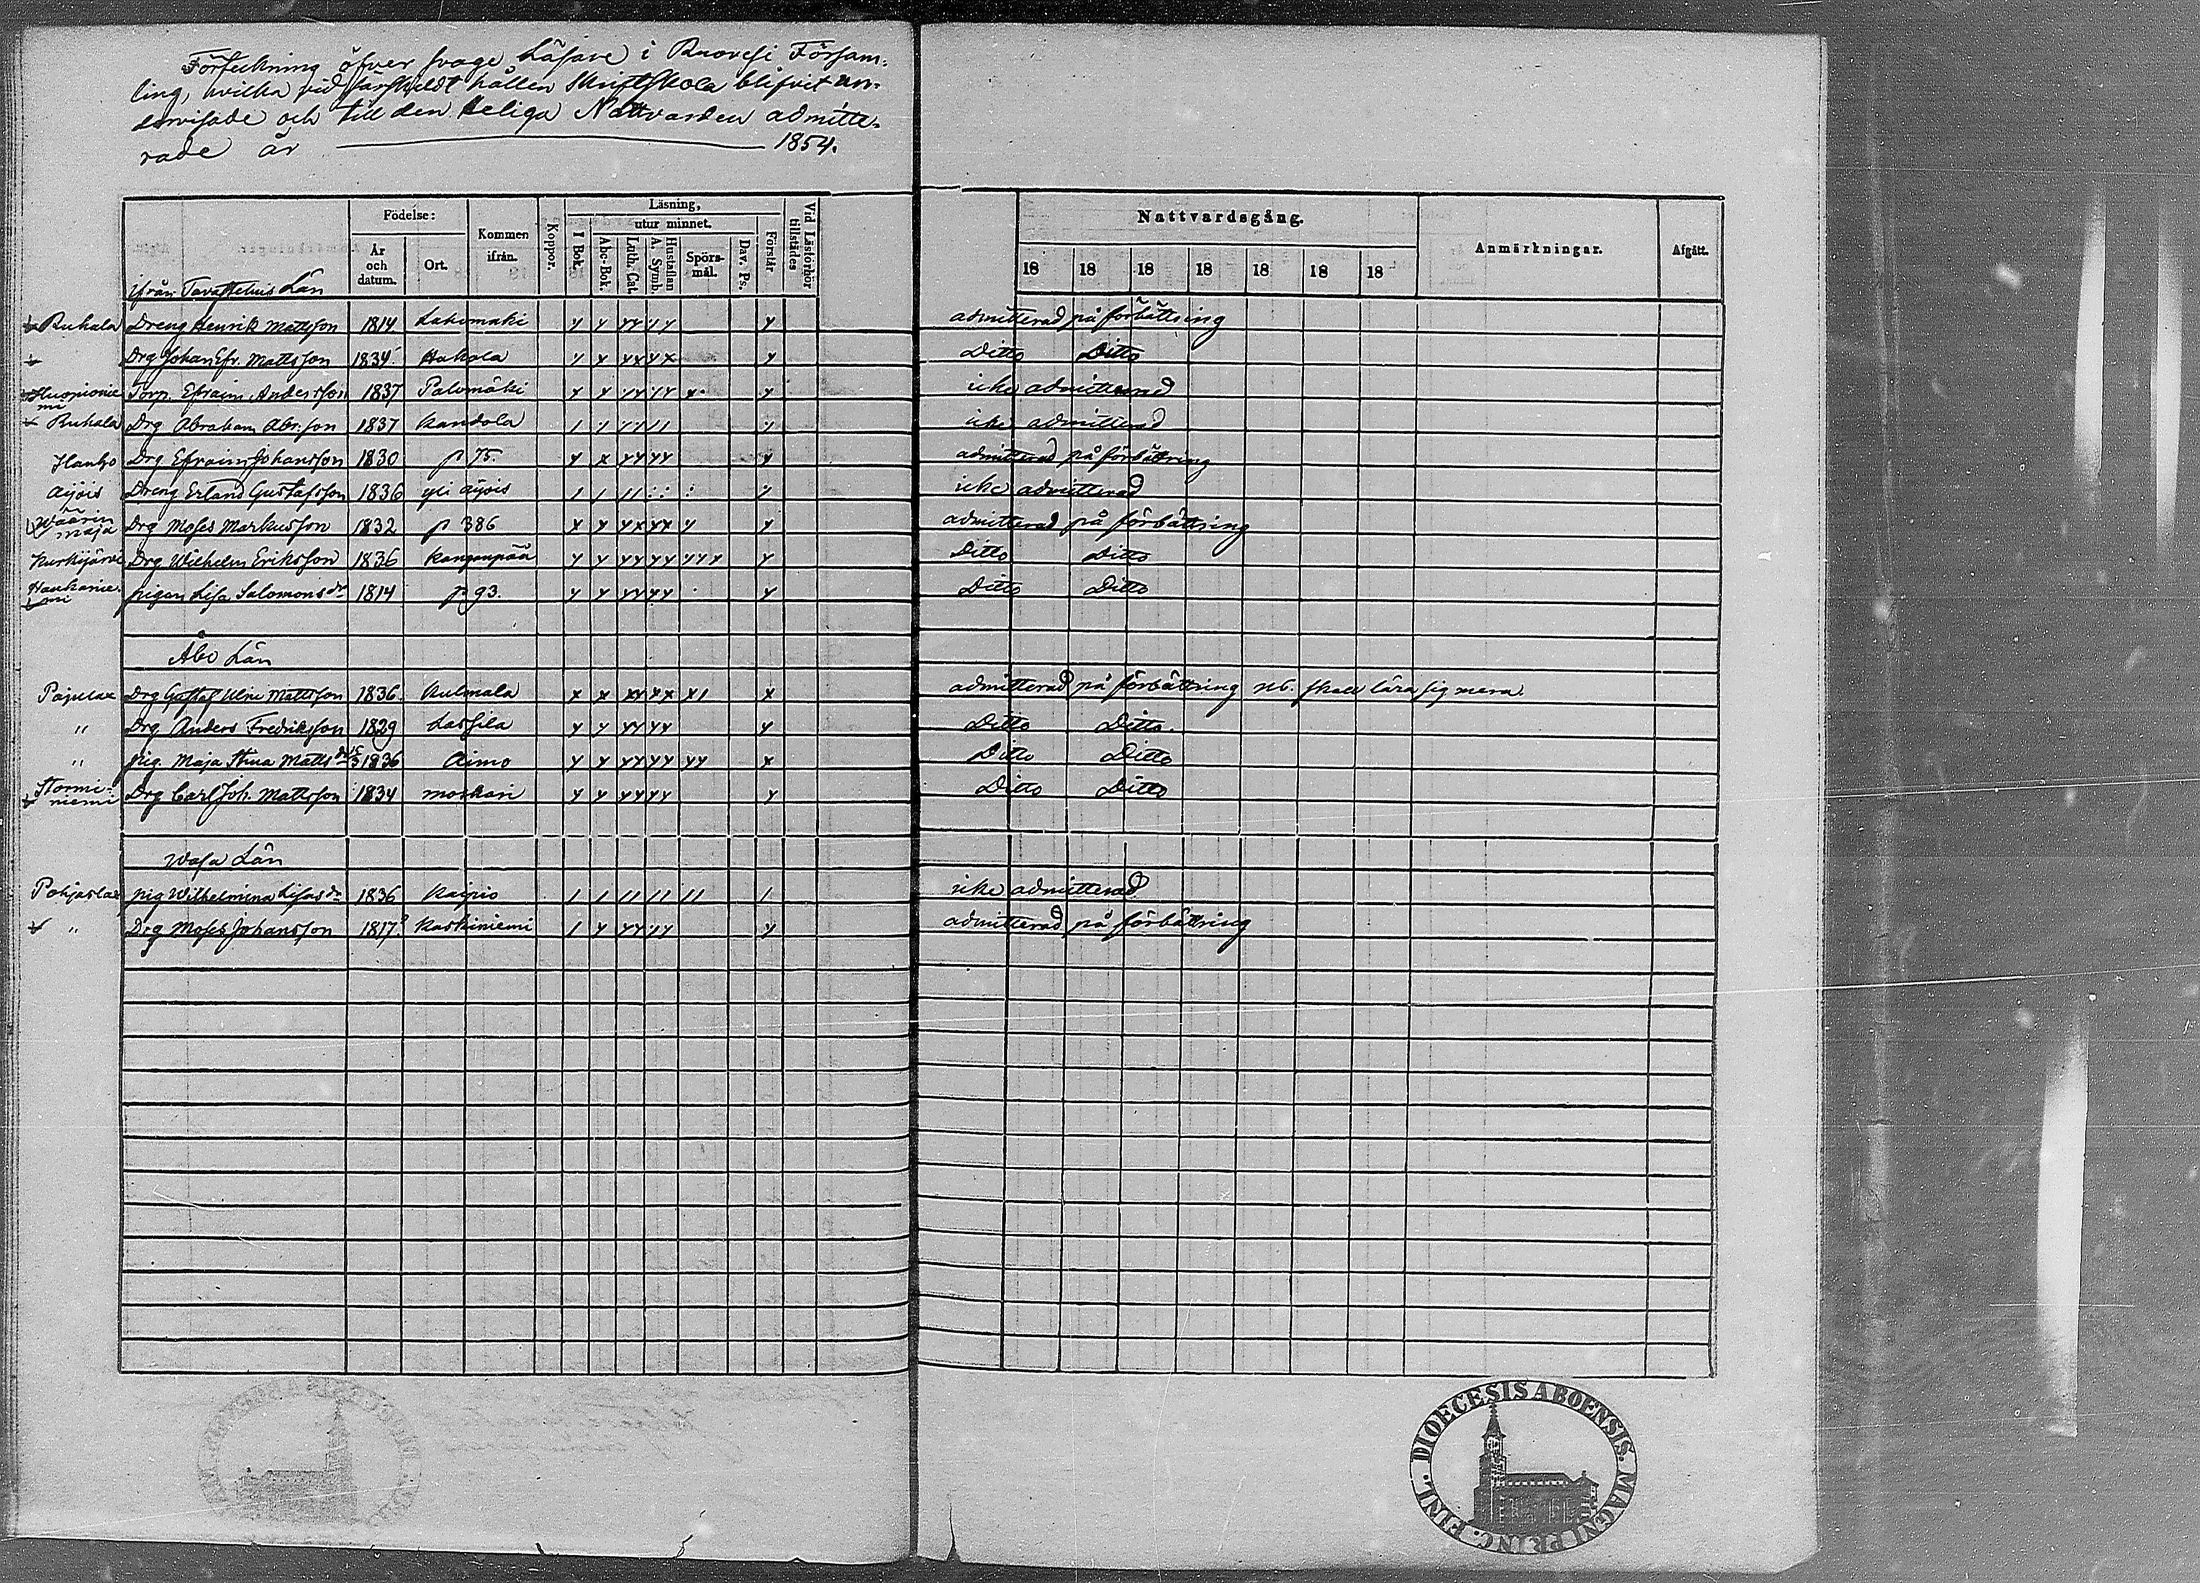 Förteckning öfver svage Läsare i Ruovesi Församling,
hvilka vid särskildt hållen Skriftskola blifvit un-
dervisade och till den heliga Nattvarden admitte-
rade år 1854.
Födelse:
År och datum.
Ort.
Kommen ifrån.
Koppor.
Läsning,
utur minnet.
I Bok.
Abc-Bok.
Luth. Cat.
A. Symb.
Hustaflan
Spörs-mål.
Dav. Ps.
Förstår.
Vid Läsförhör tillstädes
Nattvardsgång.
18 18 18 18 18 18 18
Anmärkningar.
Afgått.
ifrån Tavastehus Län
Ruhala Dreng Henrik Mattsson 1814 y y yy yy y admitterad på förbättring
Drg Johan Efr. Mattsson 1834 Hakola y y yx yx y Ditto Ditto
Torp. Efraim Andersson 1837 Palomäki y y yy yy x y icke admitterad
Ruhala Drg Abraham Abr:son 1837 Kandola icke admitterad
Hanho Drg Efraim Johansson 1830 p 75. y x yy yy y admitterad på förbättring
Äijöis Dreng Erland Gustafsson 1836 yli äijöis icke admitterad
Wäärin maja Drg Moses Markusson 1832 p 386 x y yx yx y y admitterad på förbättring
Kurkijärvi Drg Wilhelm Eriksson 1836 Kangaspää y y yy yy yy y y Ditto Ditto
Haukanie-mi pigan Lisa Salomonsdr 1814 p 93. y y yy yy y Ditto Ditto
Åbo Län
Drg Gustaf Mattsson 1836 Kulmala x x xy xx x1 x admitterad på förbättring NB. skall lära sig mera.
" Drg Anders Fredriksson 1829 Lassila y y yy yy y Ditto Ditto.
" pig. Maja Stina Mattsdr 1836 Aimo y y yy yy yy x Ditto Ditto
Stormi-niemi Drg Carl Joh. Mattsson 1834 moskari y y yy yy y Ditto Ditto
Wasa Län
Pohjaslax pig Wilhelmina Lisasdr 1836 Kaipio 1 1 11 11 11 1 icke admitterad
" Drg Moses Johansson 1817? Kaskiniemi 1 y yy yy y admitterad på förbättring
DIOECESIS ABOENSIS. MAGNI PRINC. FINL.